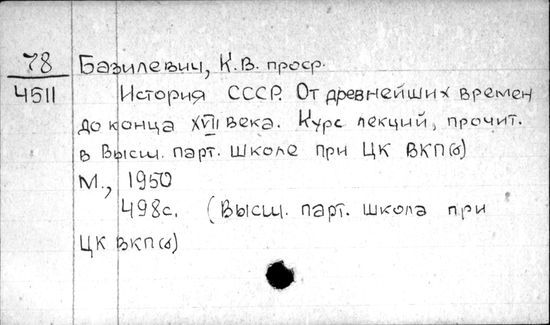 78 Базилевич, К.В. проф.
4511 История СССР. От древнейших времен
до конца XVII века. Курс лекций, прочит.
в Высш. парт. школе при ЦК ВКП(б)
М., 1950
498с. (Высш. парт. школа при
ЦК ВКП(б)